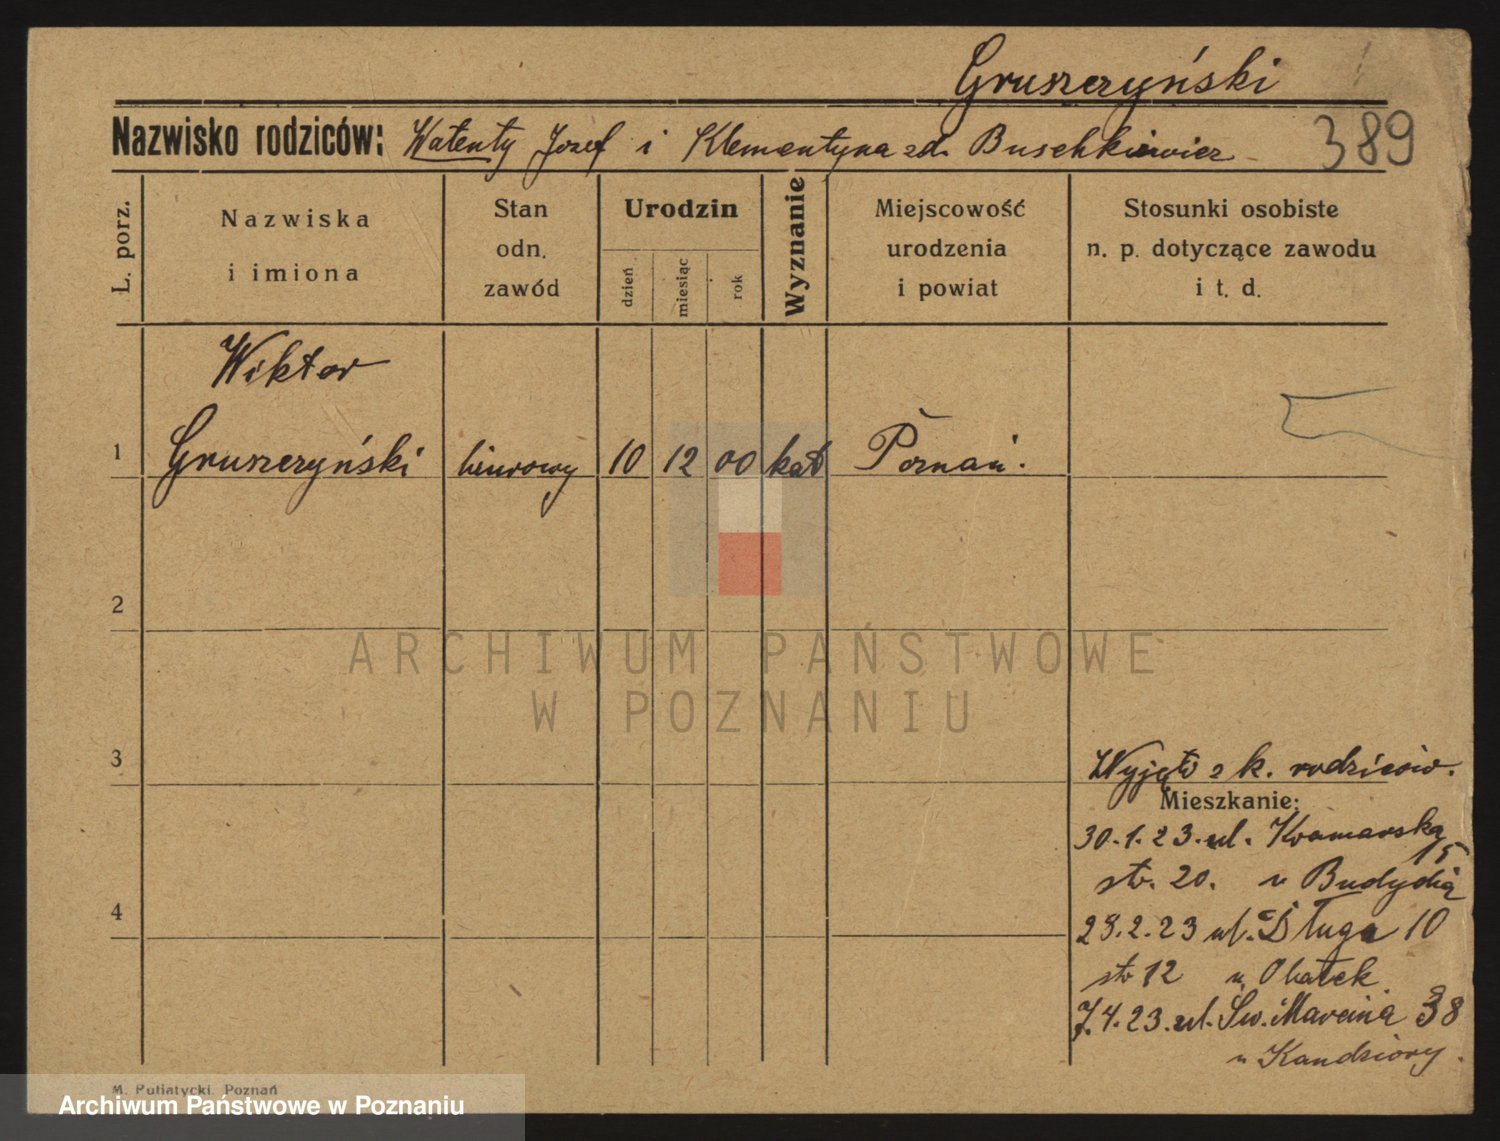 Gruszczyński
Nazwisko rodziców: Walenty Jozef i Klementyna zd. Buschkiewicz
389
L. porz.
Nazwiska
i imiona
Stan
odn.
zawód
Urodzin
dzień
miesiąc
rok
Wyznanie
Miejscowość
urodzenia
i powiat
Stosunki osobiste
n. p. dotyczące zawodu
i t. d.
Wiktor
1 Gruszczyński biurowy 10 12 00 kat Poznań.
2
ARCHIWUM PAŃSTWOWE
W POZNANIU
3
Wyjęto z k. rodziców.
Mieszkanie:
30.1.23. ul. Kramarska
15
str. 20. u
4
28.2.23 ul. Długa 10
str 12 u
7.4.23. ul. Św. Marcina 38
u Kandziory.
M. Putiatycki, Poznań
Archiwum Państwowe w Poznaniu